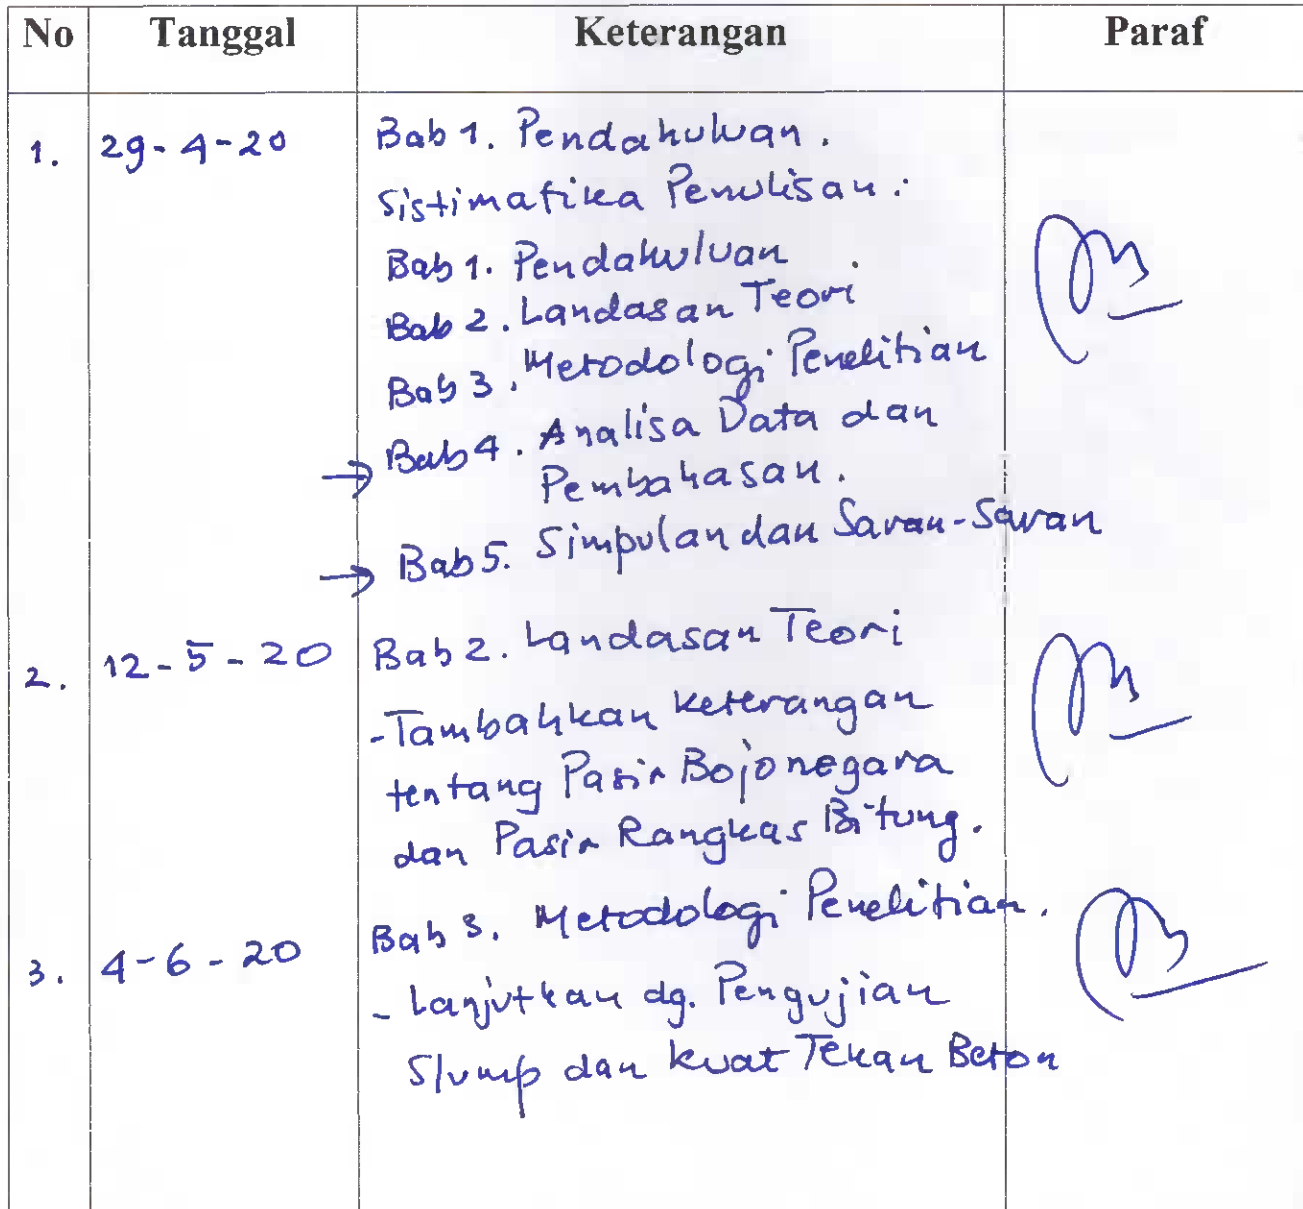 No Tanggal Keterangan Paraf
1. 29-4-20 Bab 1. Pendahuluan.
Sistimatika Penulisan:
Bab 1. Pendahuluan
Bab 2. Landasan Teori.
Bab 3. Metodologi Penelitian
→ Bab 4. Analisa Data dan
Pembahasan.
→ Bab 5. Simpulan dan Saran-Saran
2. 12-5-20 Bab 2. Landasan Teori
-Tambahkan keterangan
tentang Pasir Bojonegara
dan Pasir Rangkas Bitung.
3. 4-6-20 Bab 3. Metodologi Penelitian.
- Lanjutkan dg. Pengujian
Slump dan kuat Tekan Beton